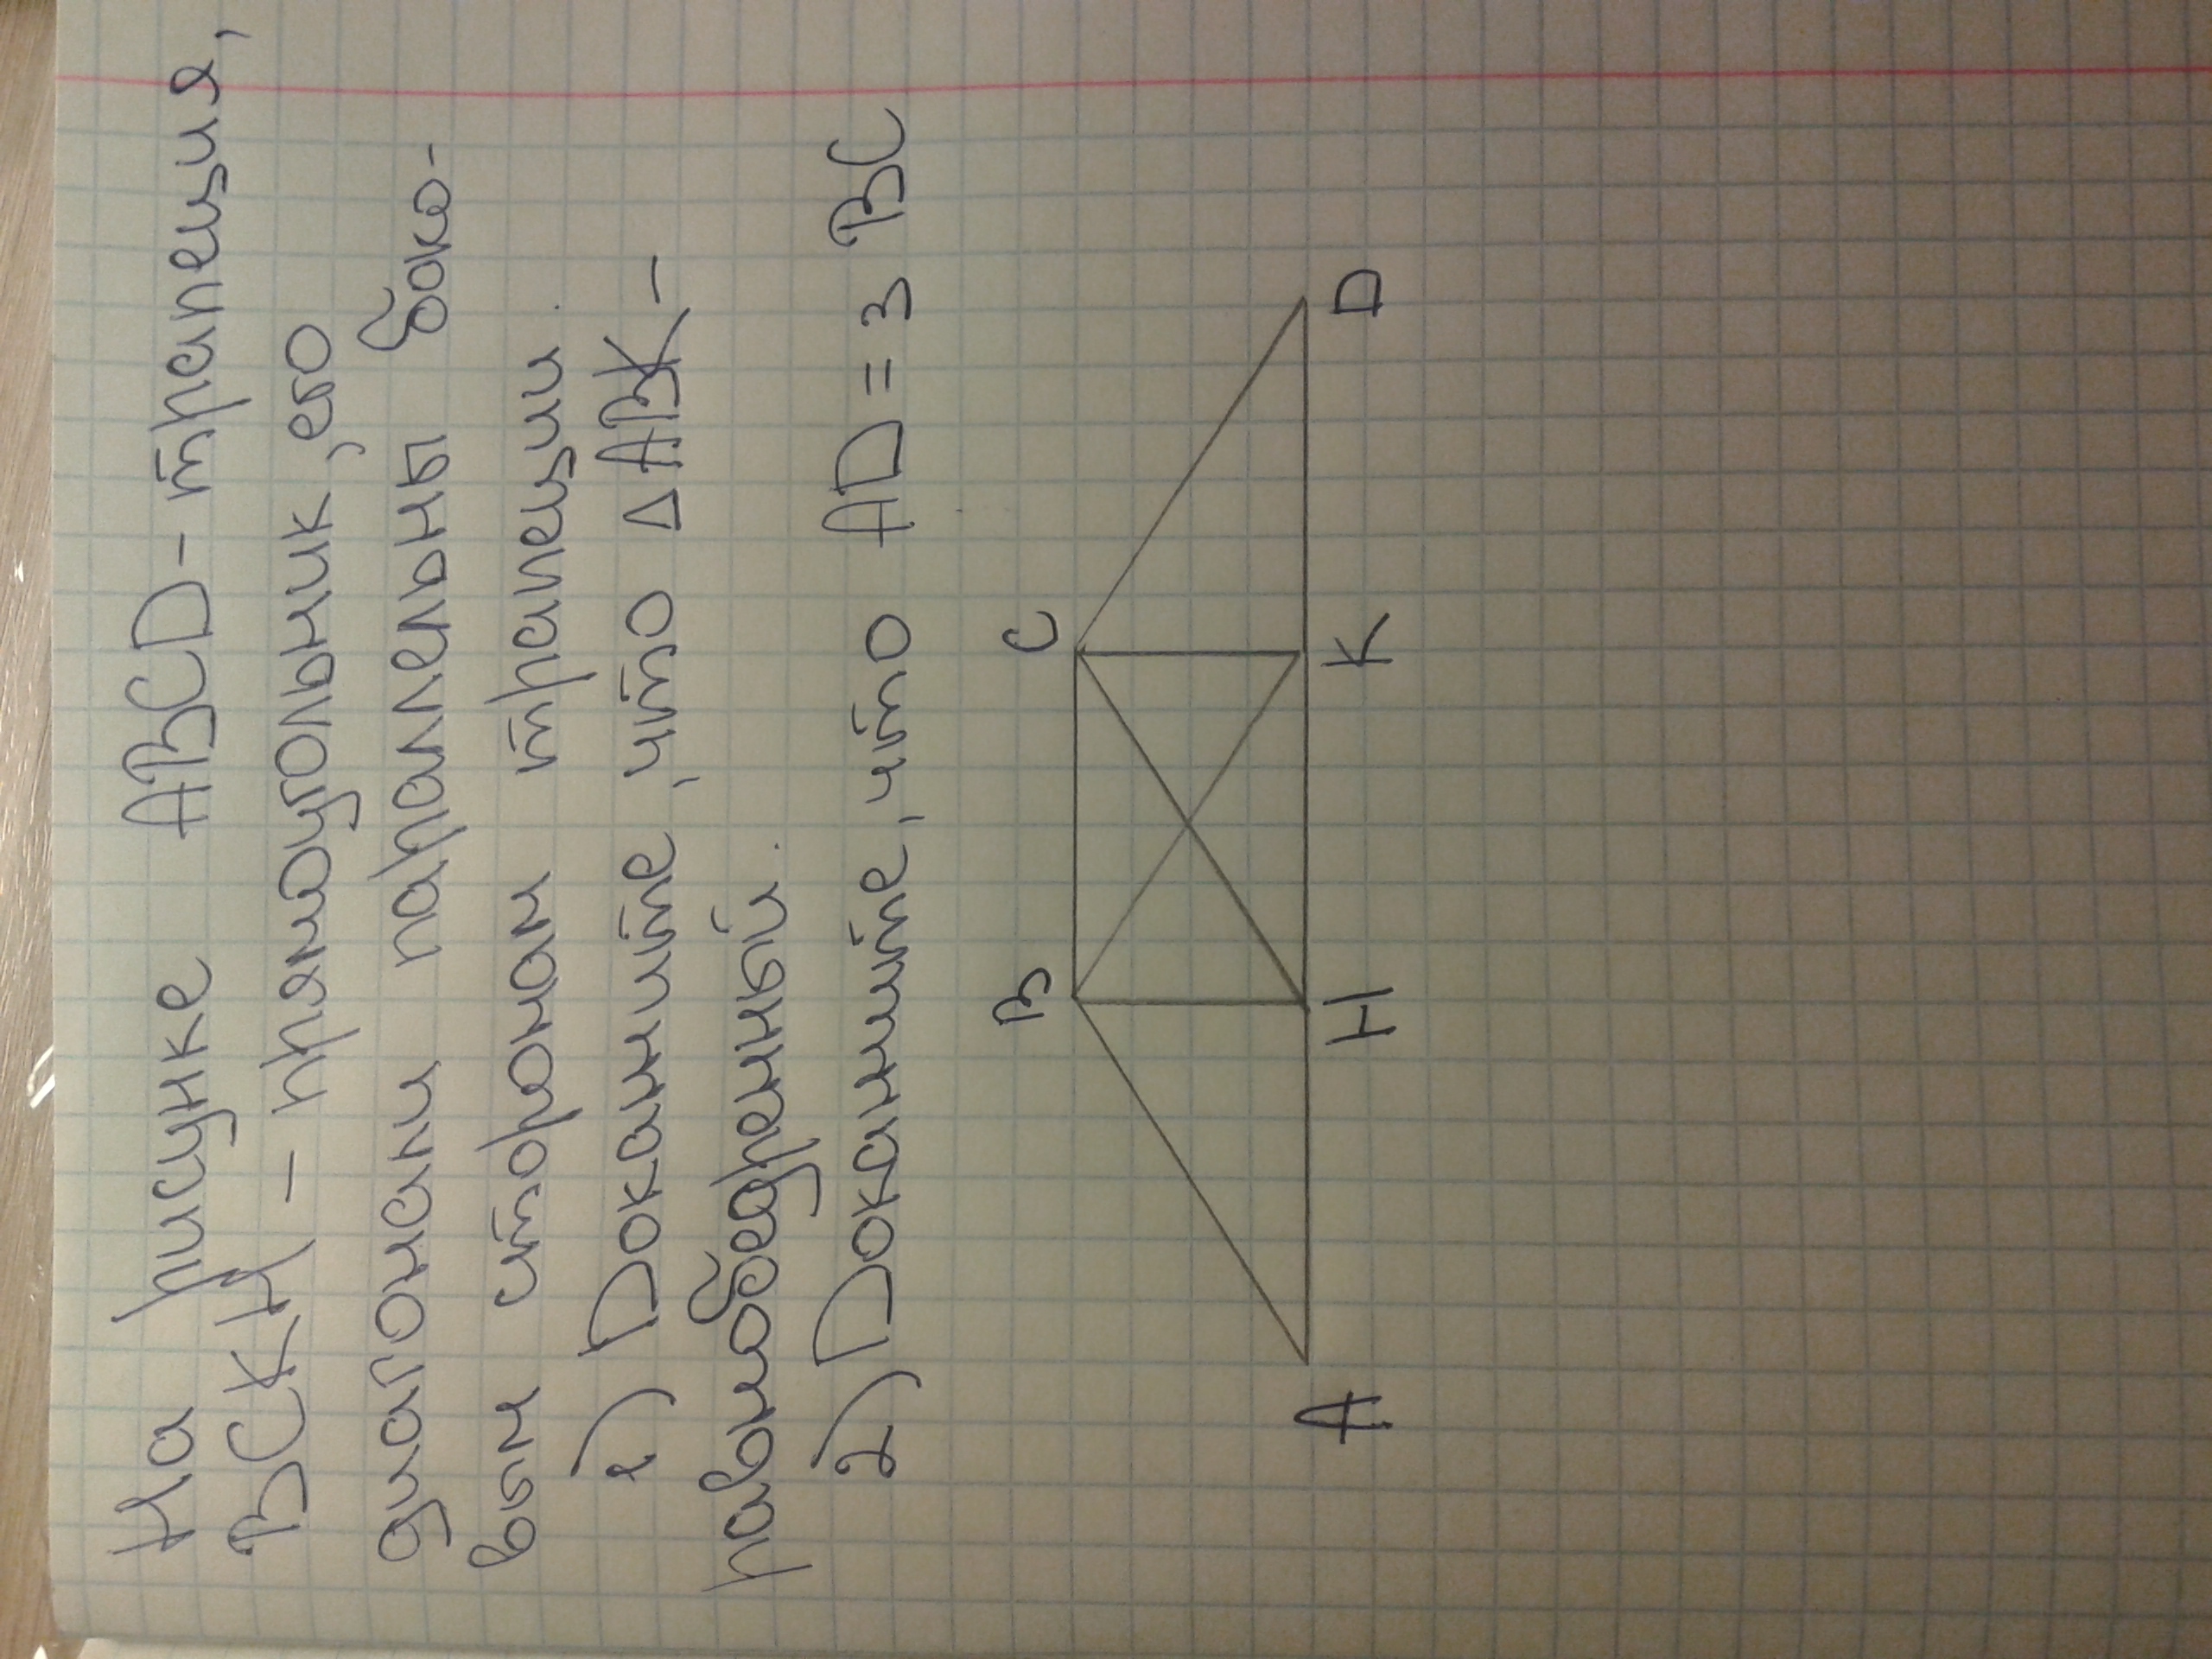 На рисунке ABCD - трапеция,
BCKH - прямоугольник, его
диагонали параллельны боко-
вым сторонам трапеции.
1) Докажите, что Δ ABK -
равнобедренный.
2) Докажите, что AD = 3 BC
B C
A H K D